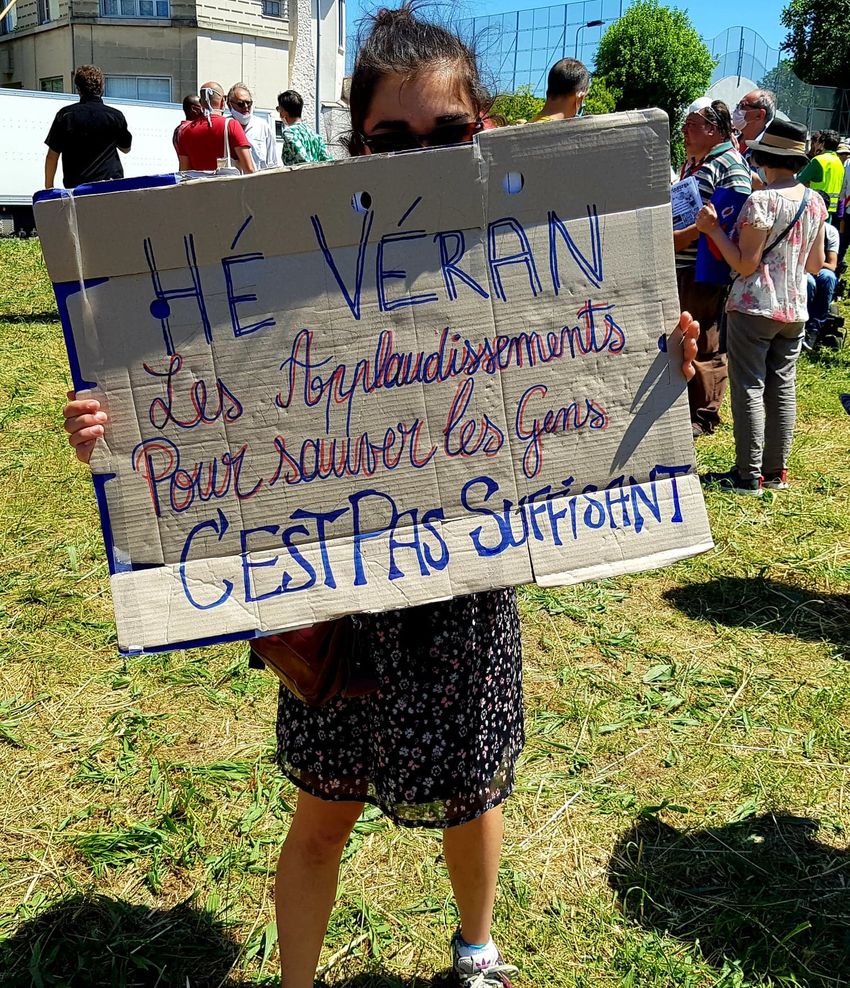 HÉ VÉRAN
Les Applaudissements
Pour sauver les Gens
C'EST PAS SUFFISANT